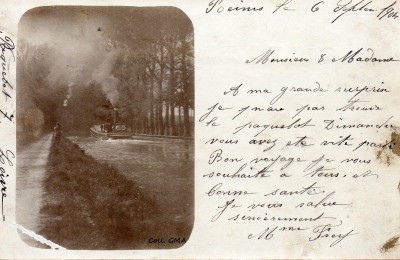 Reims le 6 Septem
Monsieur & Madame
A ma grande surprise
je n'ai pas trouvé
le paquebot Dimanche
vous avez été vite parti
Bon voyage je vous
souhaite à tous et
bonne santé
Je vous salue
sincèrement
Mme
Paquebot
Coll. GMA